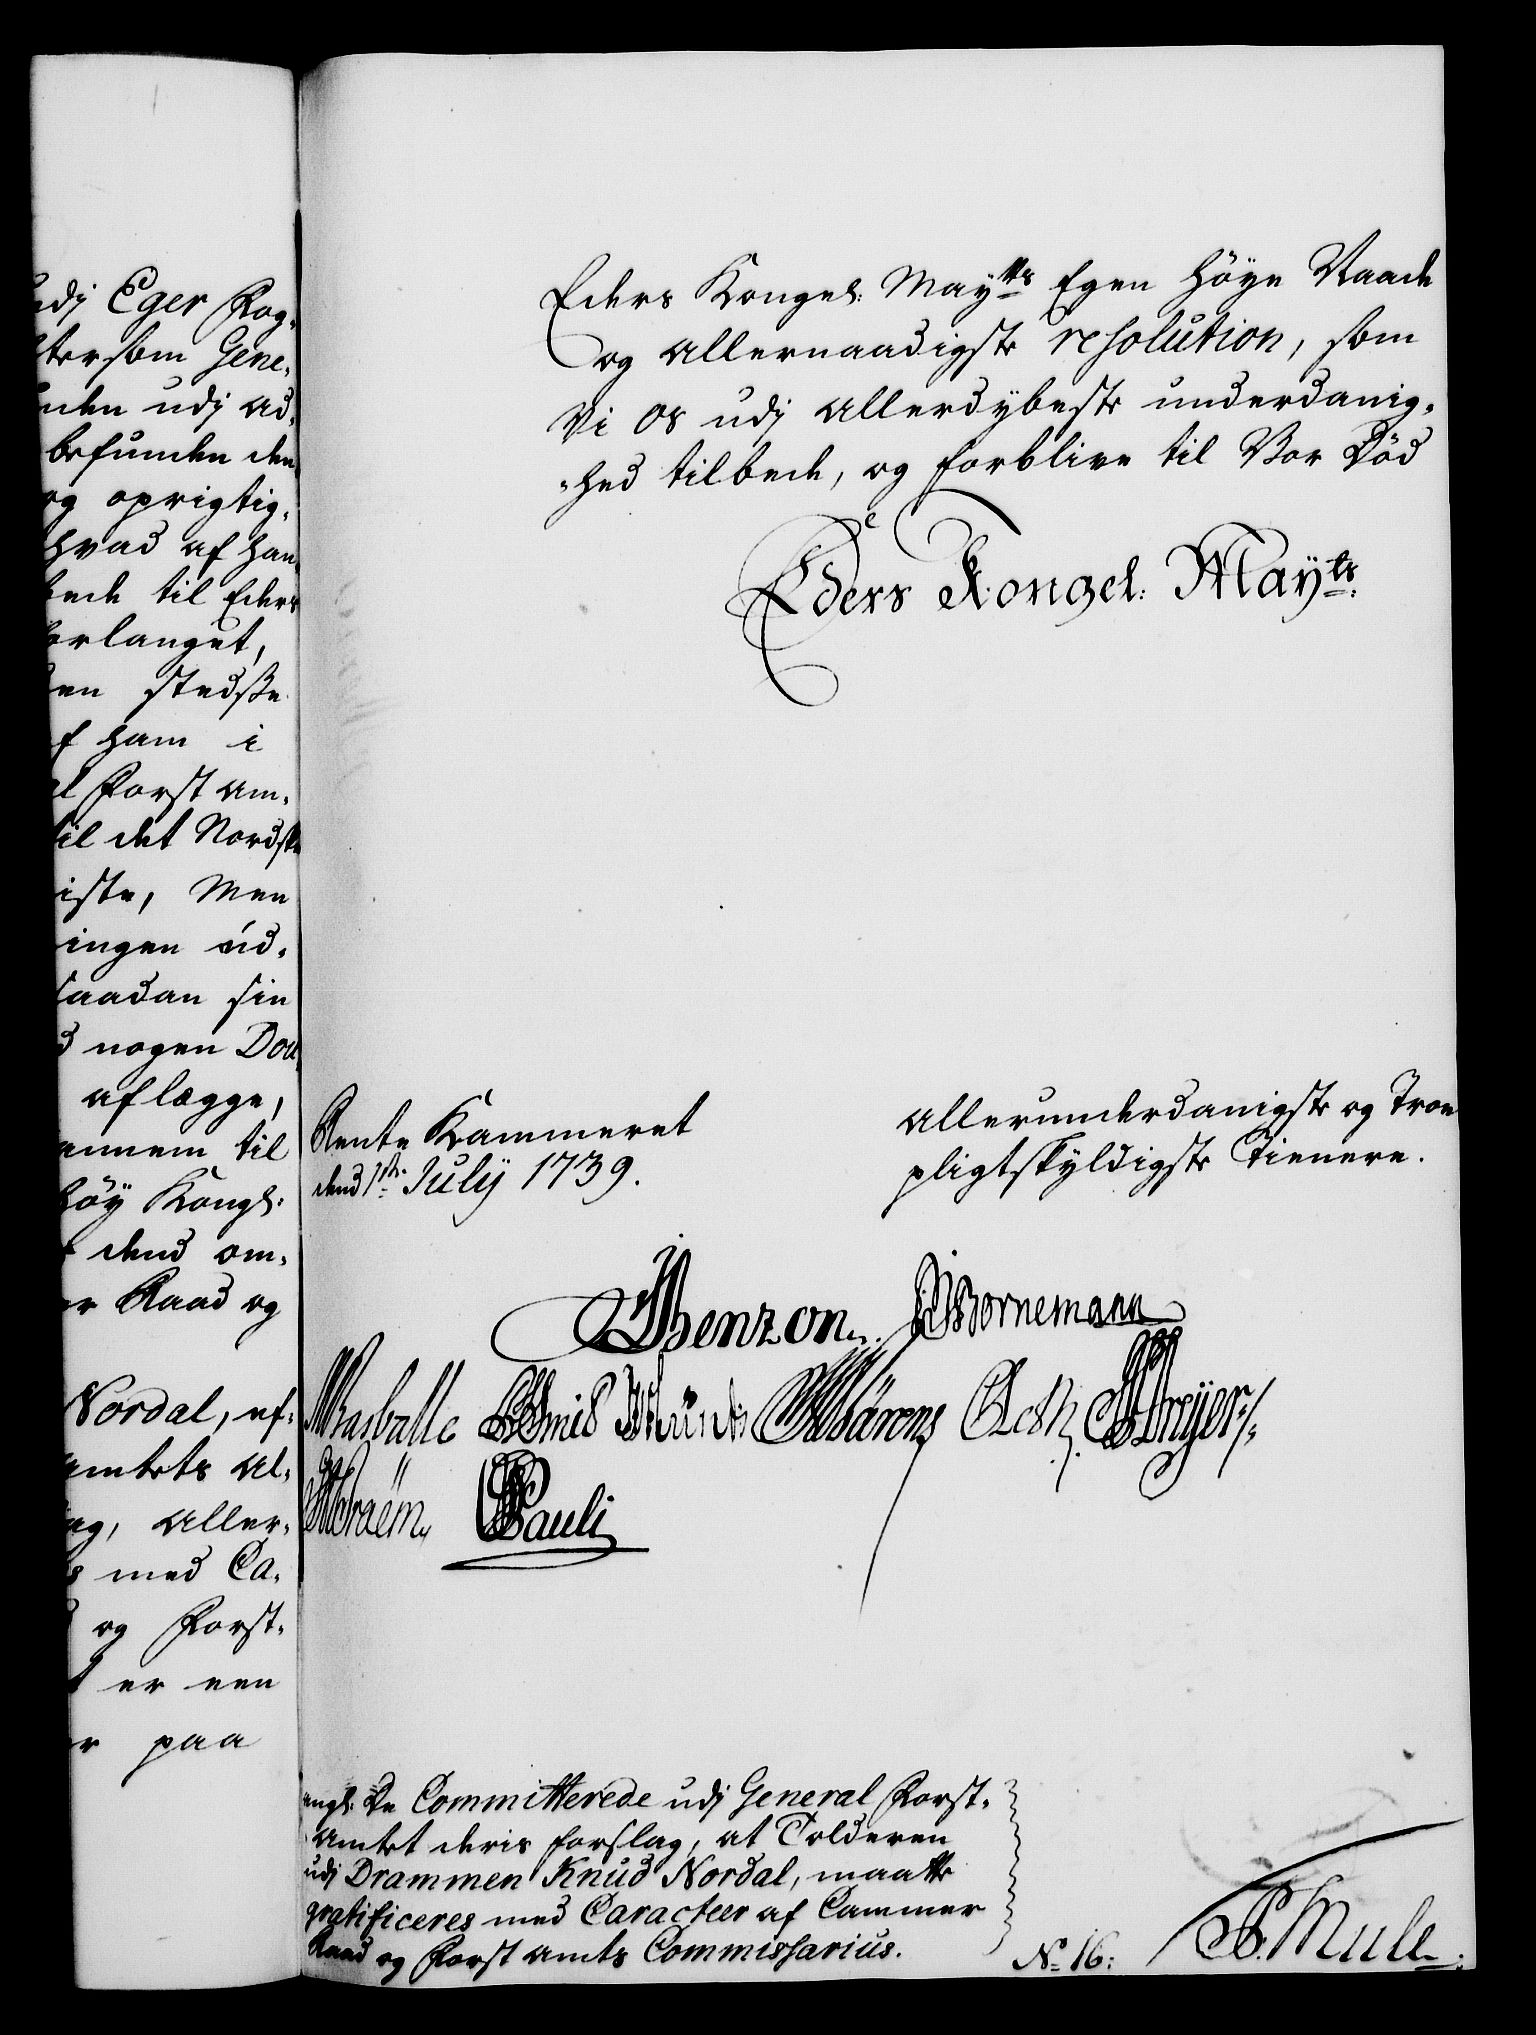 udj Eger Fog-
tersom Gene-
nden udj ad-
befunden den
og oprigtig-
hvad af han
bede til Eders
forlanget,
en stedsse
af ham i
al Forst am-
til det Nordske
iste, Men
ingen ud-
saadan sin
d nogen Dou
aflægge,
annem til
höy Kongl:
dend om-
er Raad og
Nordal, ef-
amtets al-
ag, aller-
s med Ca-
og Forst-
t er een
r paa
Eders Kongel: Mayts Egen höye Naade
og allernaadigste resolution, som
Vi os udj allerdybeste underdanig-
-hed tilbede, og forblive til Vor Död
Eders Kongel: Mayts:
Rente Kammeret
dend 1ste July 1739.
allerunderdanigste og Troe
pligtskyldigste Tienere.
Benzon. Bornemann
Basballe Smid Münch Bärens Asch Dreyer
Braëm Pauli
angl: De Committerede udj General Forst-
amtet deris forslag, at Tolderen
udj Drammen Knud Nordal, maatte
gratificeres med Caracteer af Cammer
Raad og Forst amts Commissarius.
No 16:
Mule